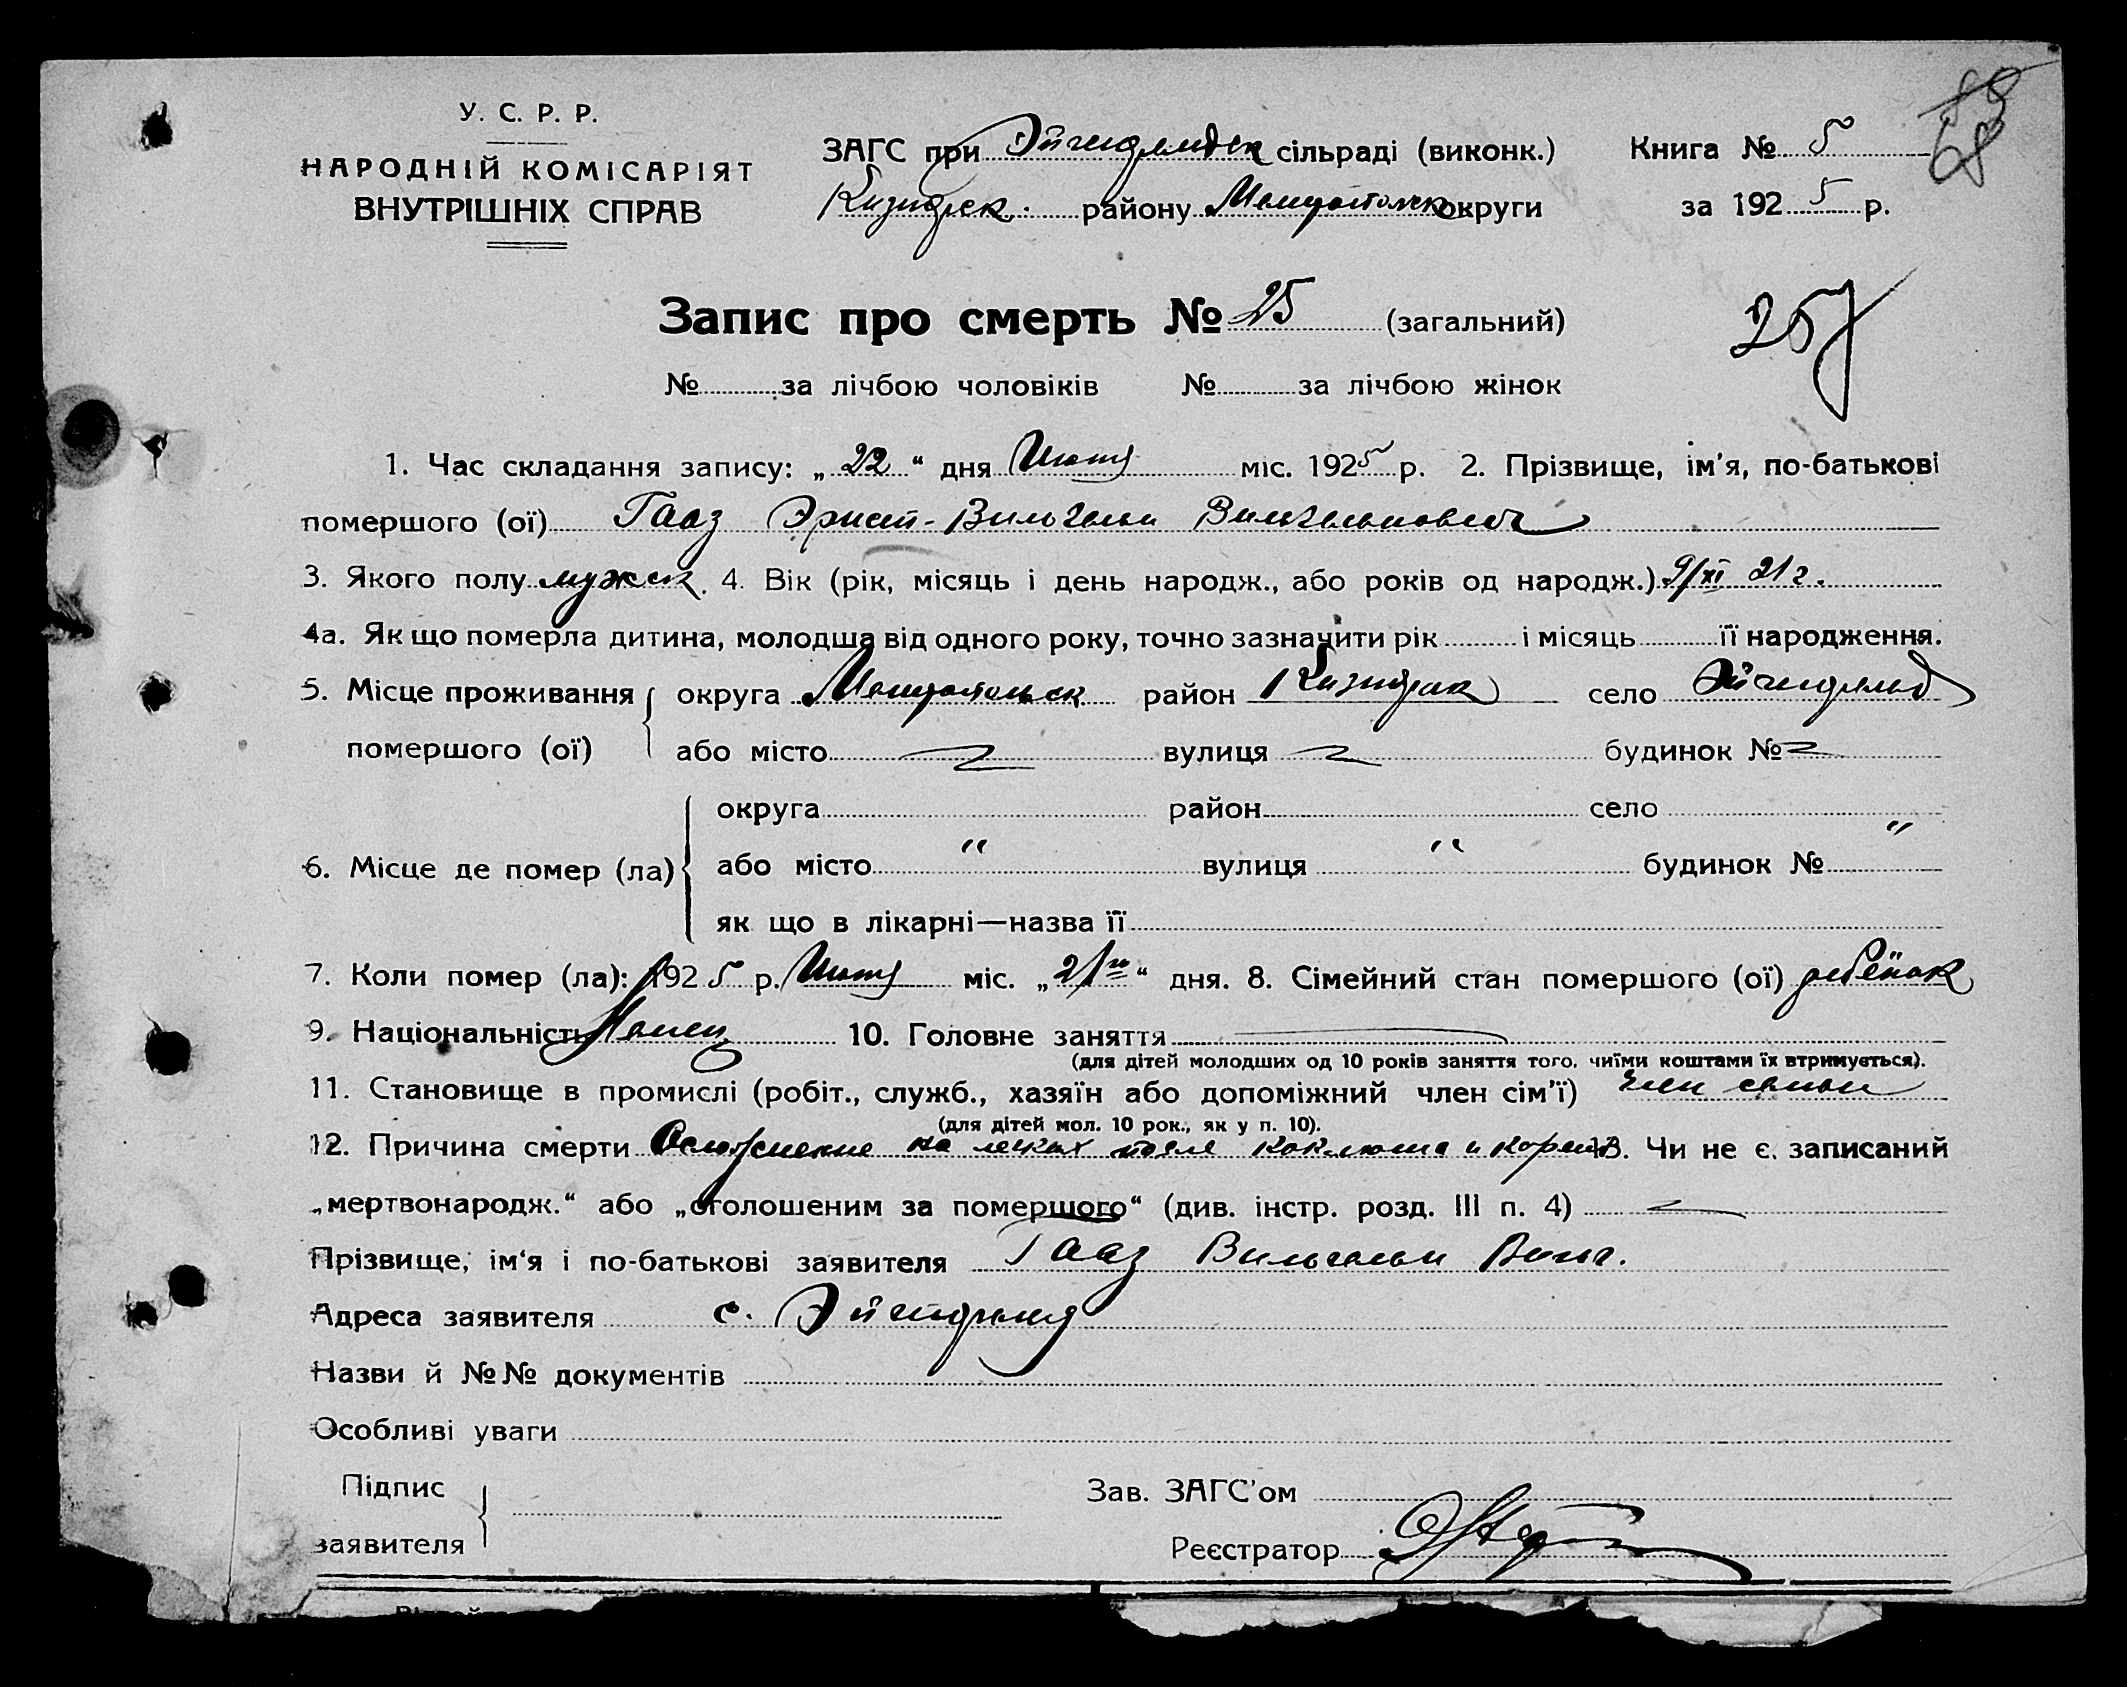 У. С. Р. Р.
НАРОДНІЙ КОМІСАРІЯТ
ВНУТРІШНІХ СПРАВ
ЗАГС при сільраді (виконк.)
району округи
Книга № 5
за 1925 р.
68
Запис про смерть № 25 (загальний)
257
№ за лічбою чоловіків № за лічбою жінок
1. Час складання запису: „22“ дня міс. 1925 р. 2. Прізвище, ім'я, по-батькові
помершого (ої) Гааз Эрнст-Вильгельм Вильгельмович
3. Якого полу мужск. 4. Вік (рік, місяць і день народж., або років од народж.) 9/XI 21 г.
4а. Як що померла дитина, молодша від одного року, точно зазначити рік і місяць її народження.
5. Місце проживання округа район село
помершого (ої) або місто вулиця будинок №
округа район село
6. Місце де помер (ла) або місто " вулиця " будинок № "
як що в лікарні—назва її
7. Коли помер (ла): 1925 р. міс. „21го“ дня. 8. Сімейний стан помершого (ої) ребёнок
9. Національність Немец 10. Головне заняття
(для дітей молодших од 10 років заняття того, чиїми коштами їх втримується).
11. Становище в промислі (робіт., служб., хазяїн або допоміжний член сім'ї) член семьи
(для дітей мол. 10 рок., як у п. 10).
12. Причина смерти Осложнение на легких после коклюша и кори 13. Чи не є. записаний
„мертвонародж.“ або „оголошеним за помершого“ (див. інстр. розд. III п. 4)
Прізвище, ім'я і по-батькові заявителя Гааз Вильгельм Вильг.
Адреса заявителя с.
Назви й №№ документів
Особливі уваги
Підпис
заявителя
Зав. ЗАГС'ом
Реєстратор